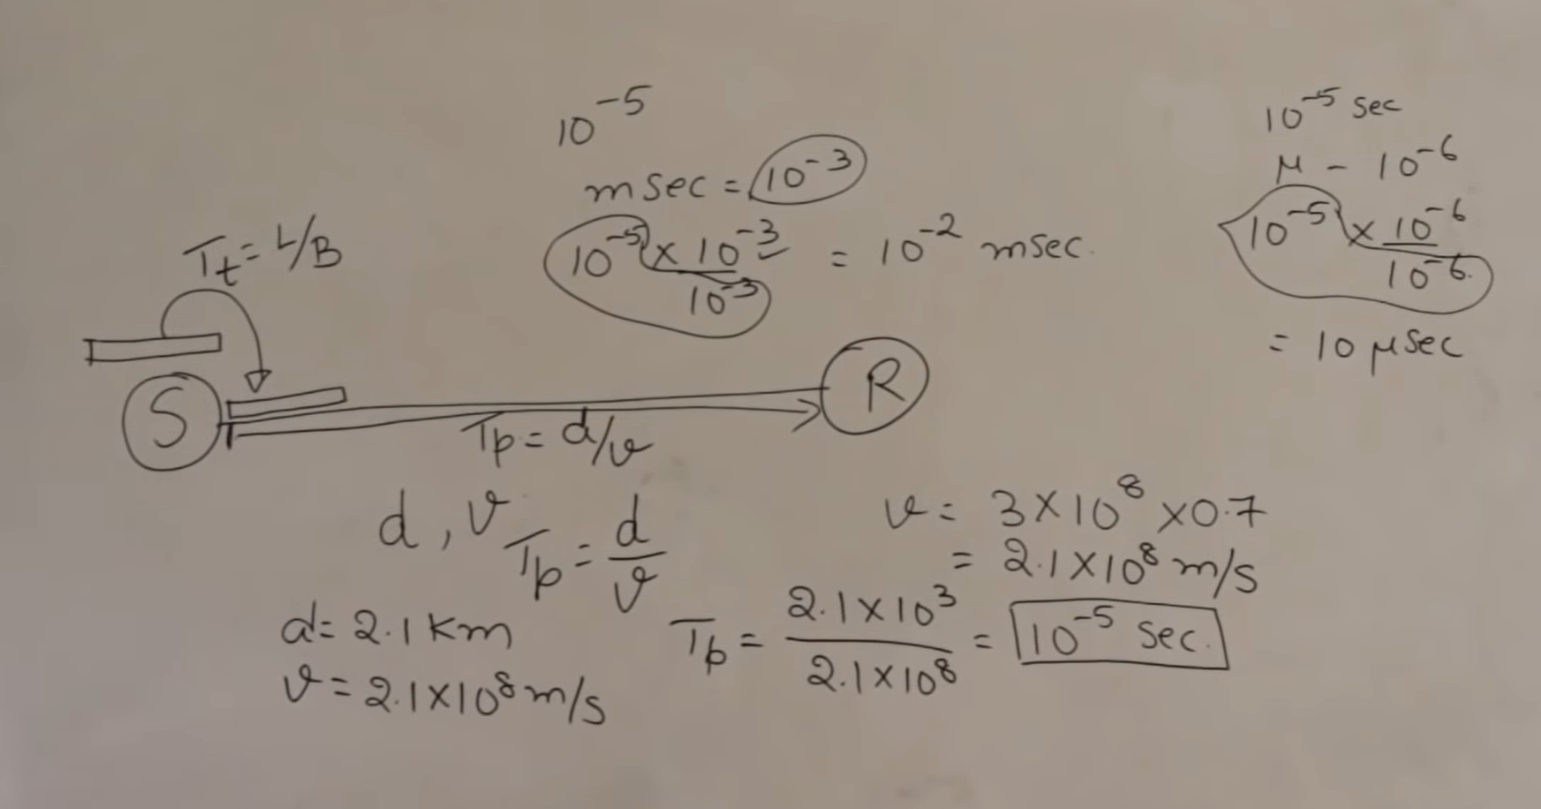 10^-5
msec = 10^-3
10^-5 × 10^-3 / 10^-3 = 10^-2 msec.
10^-5 sec
μ - 10^-6
10^-5 × 10^-6 / 10^-6
= 10 μsec
Tt = L/B
S
R
Tp = d/v
d, v
Tp = d/v
d = 2.1 Km
v = 2.1×10^8 m/s
v = 3×10^8 ×0.7
= 2.1×10^8 m/s
Tp = 2.1×10^3 / 2.1×10^8 = 10^-5 sec.